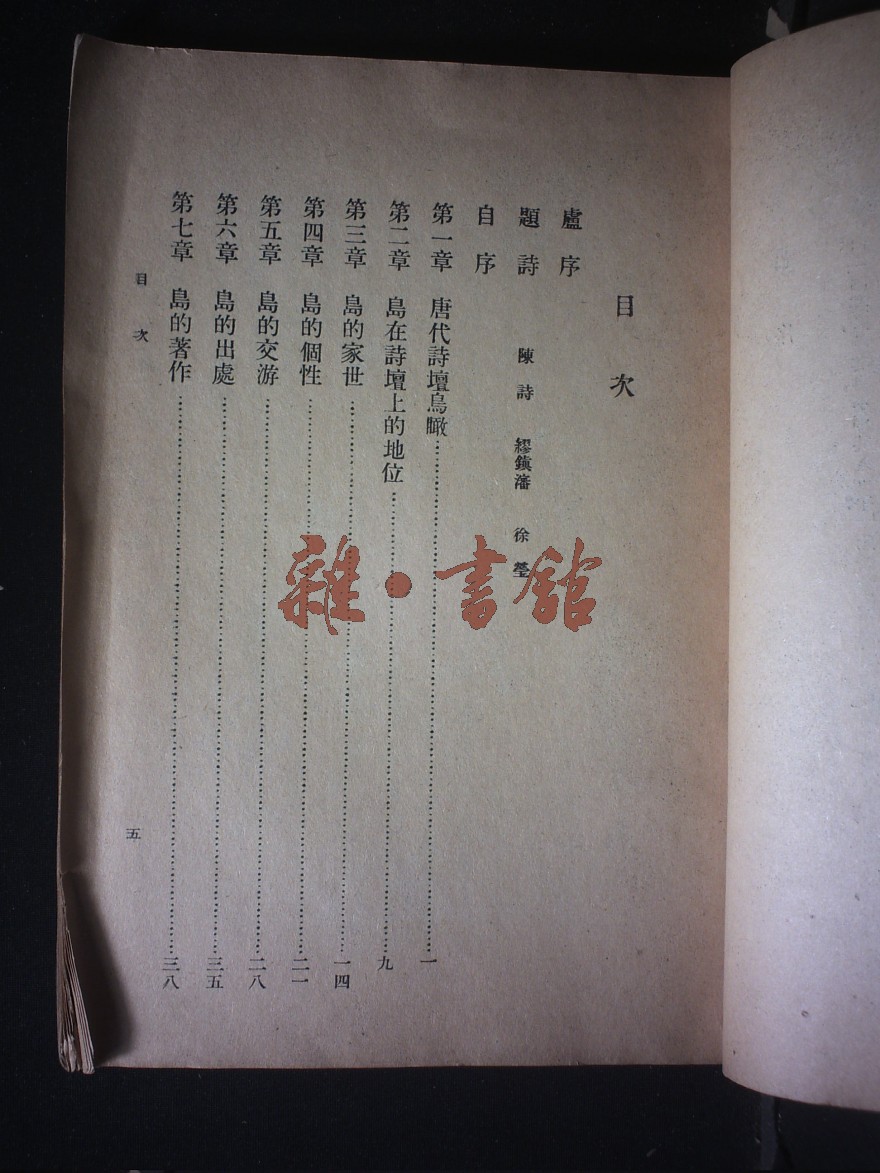 目次
盧序
題詩 陳詩 繆鎮藩 徐瑩
自序
第一章 唐代詩壇鳥瞰……一
第二章 島在詩壇上的地位……九
第三章 島的家世……一四
第四章 島的個性……二一
第五章 島的交游……二八
第六章 島的出處……三五
第七章 島的著作……三八
目次
五
雜·書館